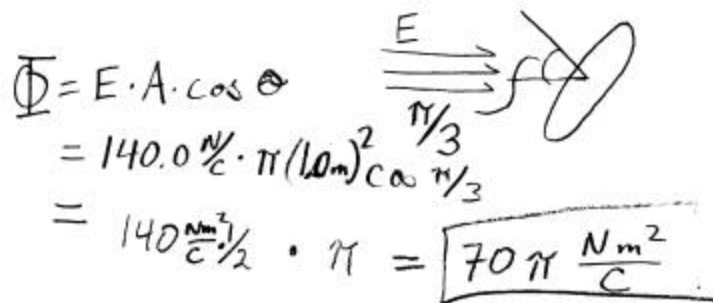 E
Φ = E · A · cos θ
π/3
= 140.0 N/C · π(1.0m)² cos π/3
= 140 Nm²/C · 1/2 · π = 70π Nm²/C